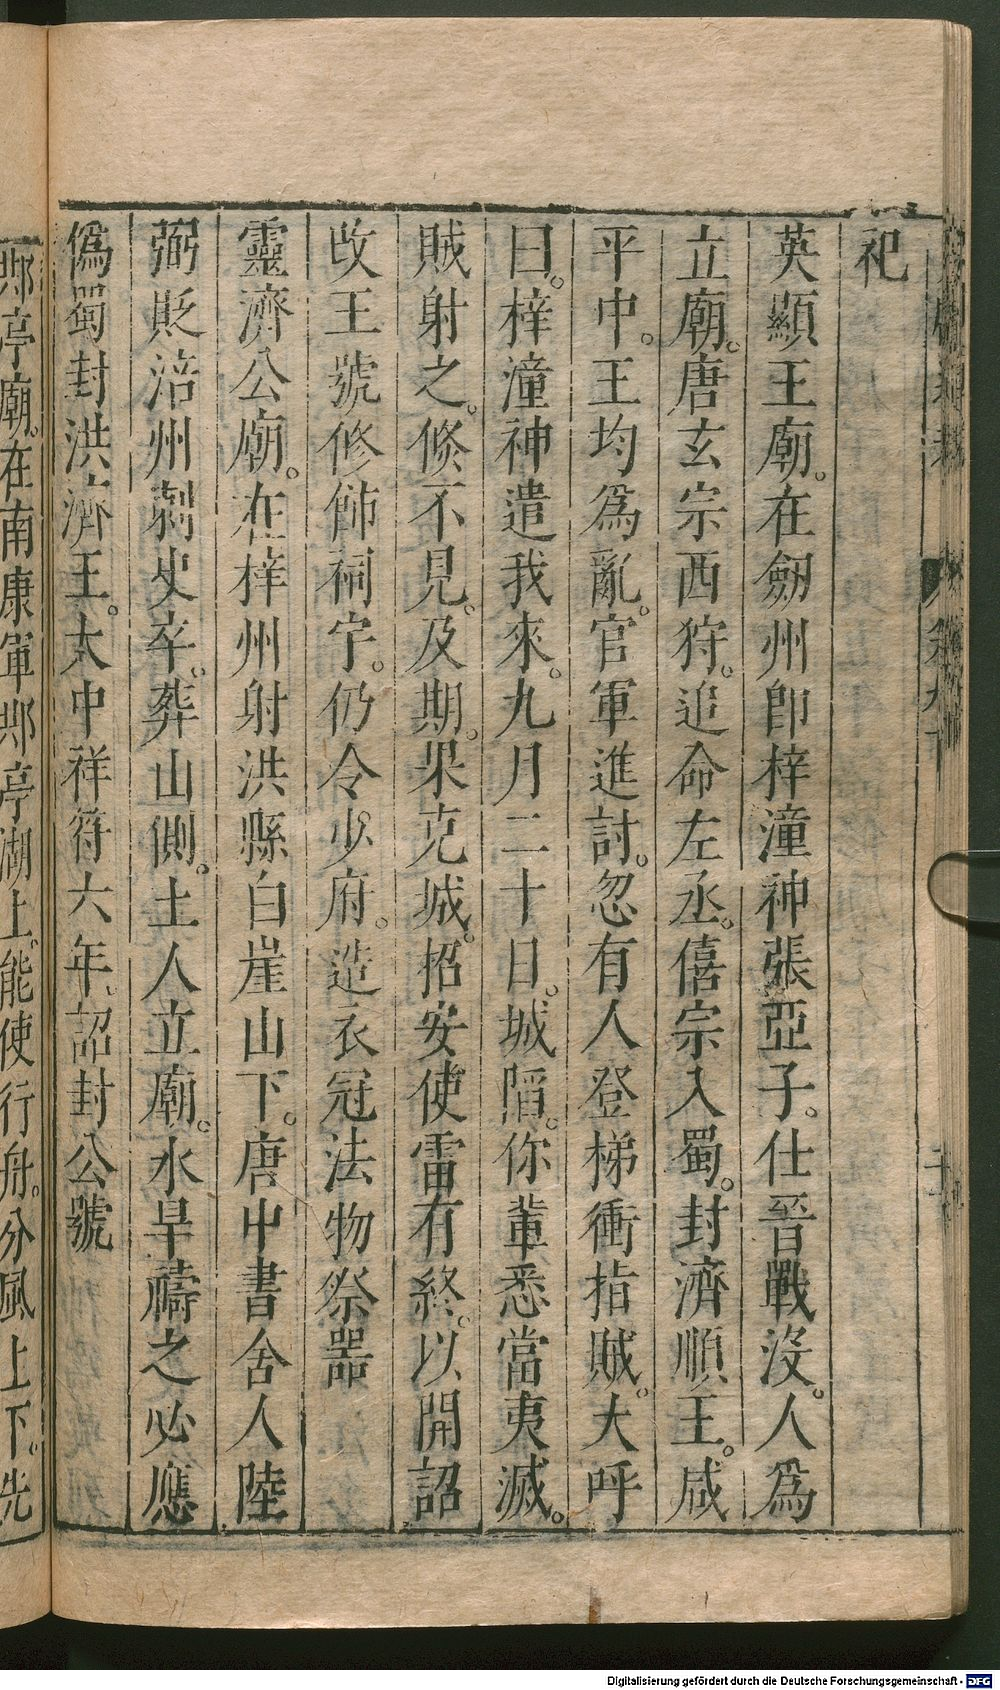 祀
英顯王廟。在劒州卽梓潼神張亞子。仕晉戰没。人爲
立廟。唐玄宗西狩。追命左丞。僖宗入蜀。封濟順王。咸
平中。王均爲亂。官軍進討。忽有人登梯衝指賊。大呼
曰。梓潼神遣我來。九月二十日。城陷。你輩悉當夷滅。
賊射之。倐不見。及期。果克城。招安使雷有終。以開詔
改王號修飾祠宇。仍令少府。造衣冠法物祭噐
靈濟公廟。在梓州射洪縣白崖山下。唐中書舍人陸
弼貶涪州刺史卒。葬山側。土人立廟。水旱禱之必應
僞蜀封洪濟王。大中祥符六年、詔封公號
䢼亭廟。在南康軍䢼亭湖上。能使行舟。分風上下。先
Digitalisierung gefördert durch die Deutsche Forschungsgemeinschaft - DFG